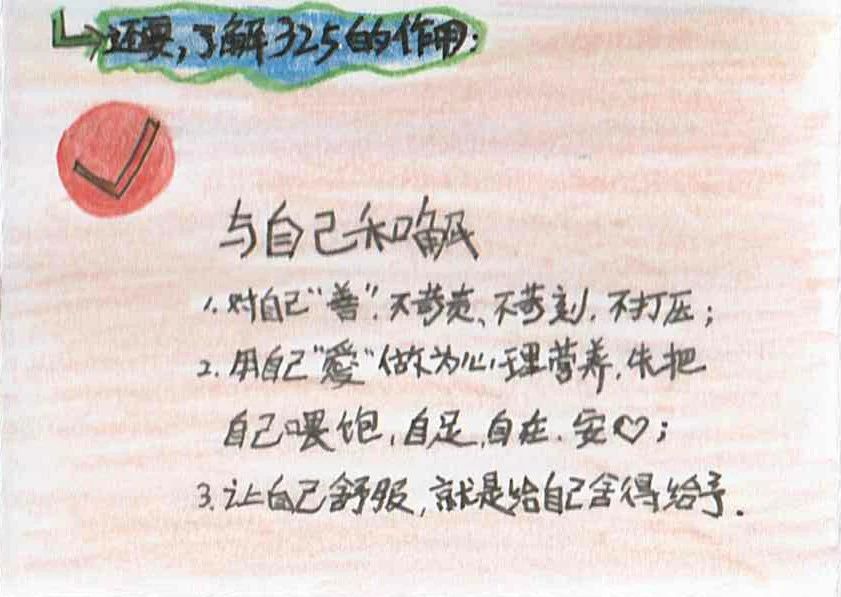 还要,了解325的作用:
与自己和解
1.对自己“善”,不苛责、不苛刻,不打压;
2.用自己“爱”做为心理营养,先把
自己喂饱,自足,自在,安♡;
3.让自己舒服,就是给自己舍得给予.